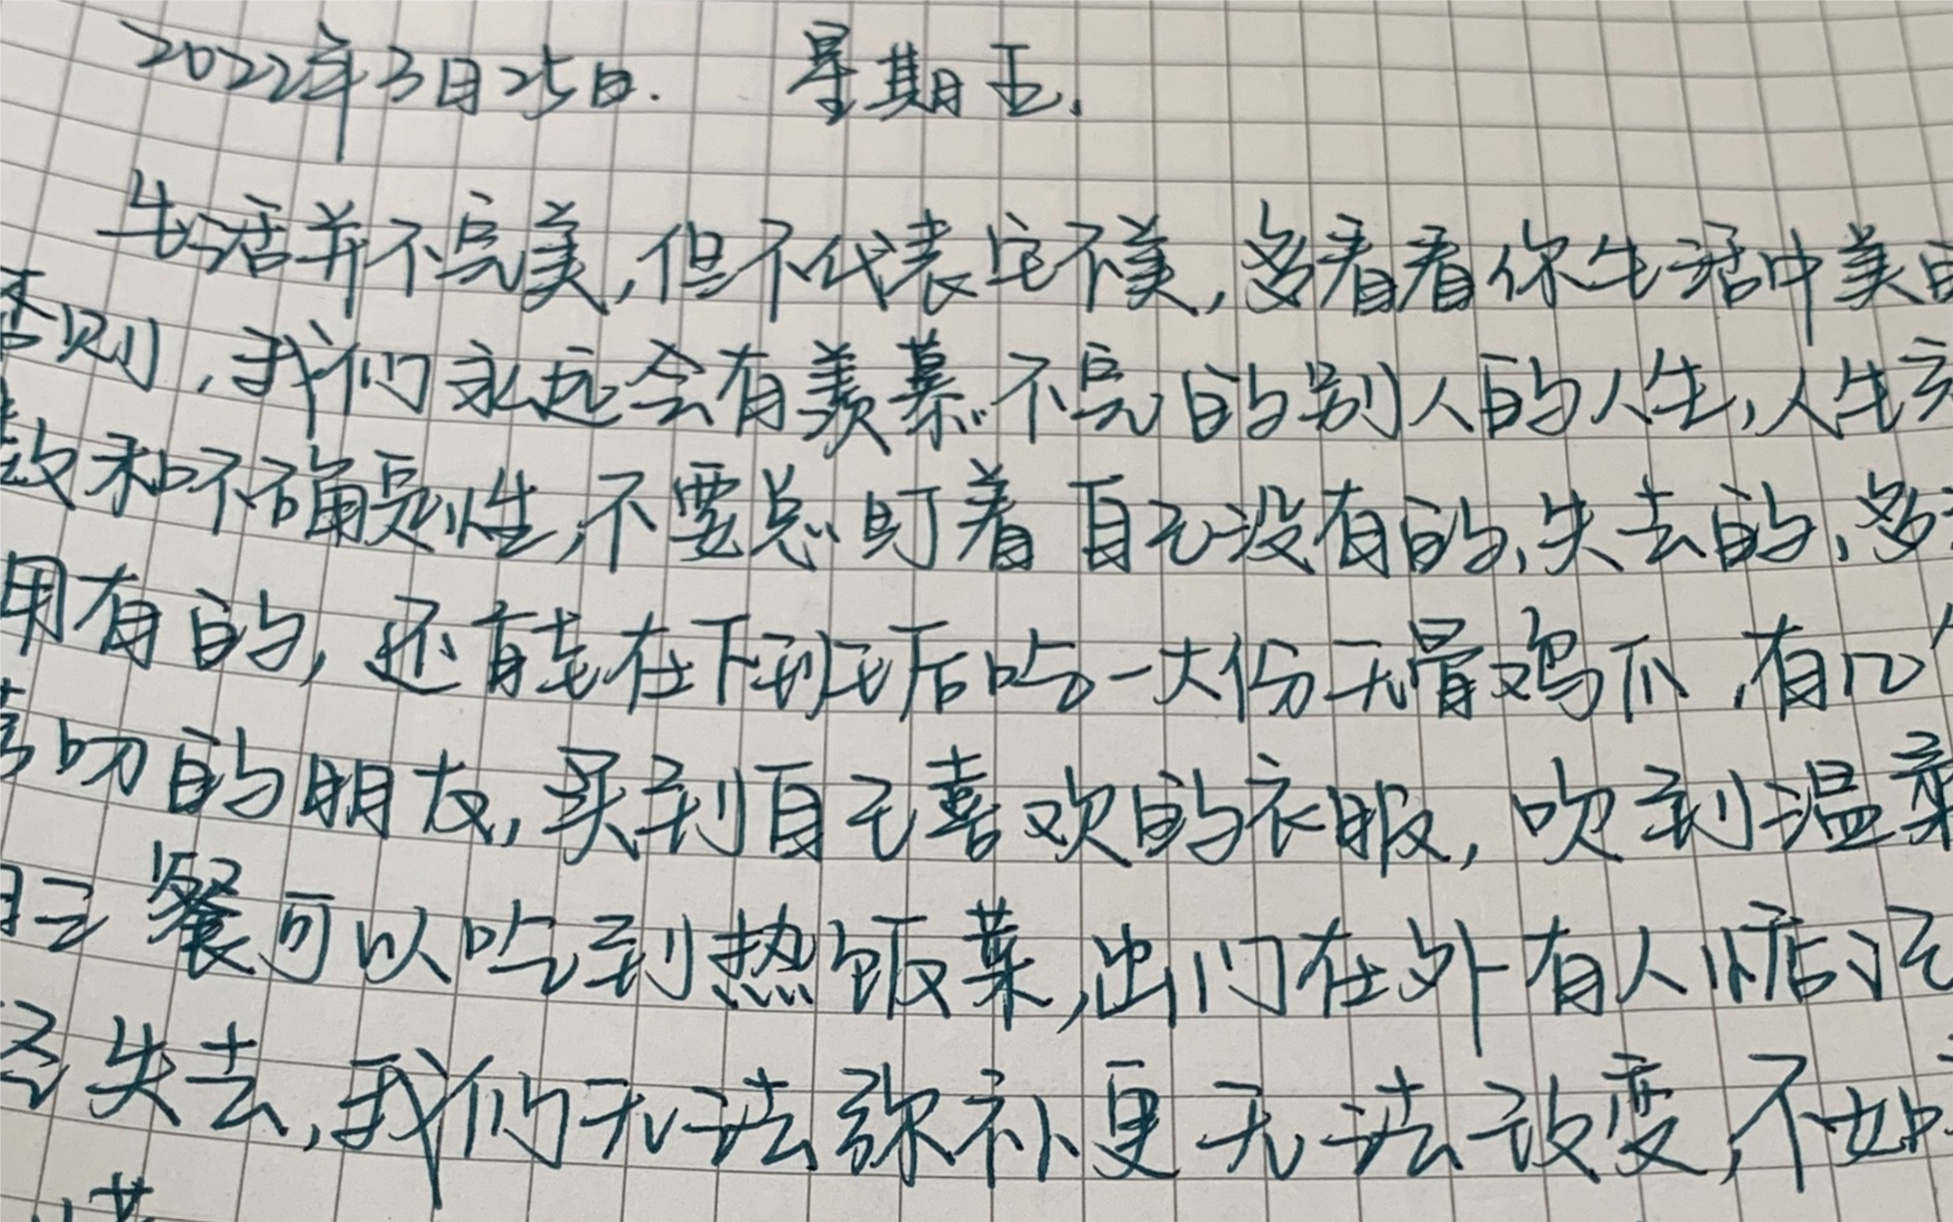 2022年3月25日. 星期五.
生活并不完美,但不代表它不美,多看看你生活中美的
否则,我们永远会有羡慕不完的别人的人生,人生充
数和不确定性,不要总盯着自己没有的,失去的,多
用有的,还能在下班后吃一大份无骨鸡爪,有几个
的朋友,买到自己喜欢的衣服,吹到温柔
日三餐可以吃到热饭菜,出门在外有人惦记
失去,我们无法弥补更无法改变,不如